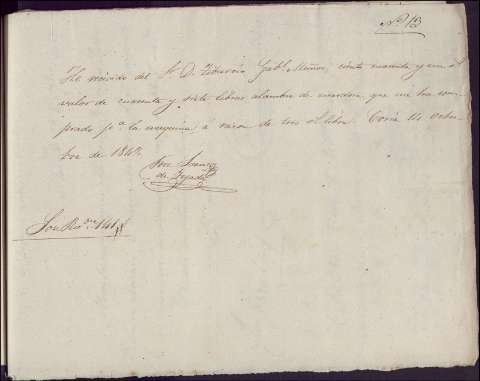 Nº 13
He recivido del Sr. D. Tiburcio Gabl. Muñoz, ciento cuarenta y un rs.
valor de cuarenta y siete libras alambre de que me ha com-
prado pª la maquina á razon de tres rs. libra. Coria 14 Octu-
bre de 184
Son Rs. von. 141